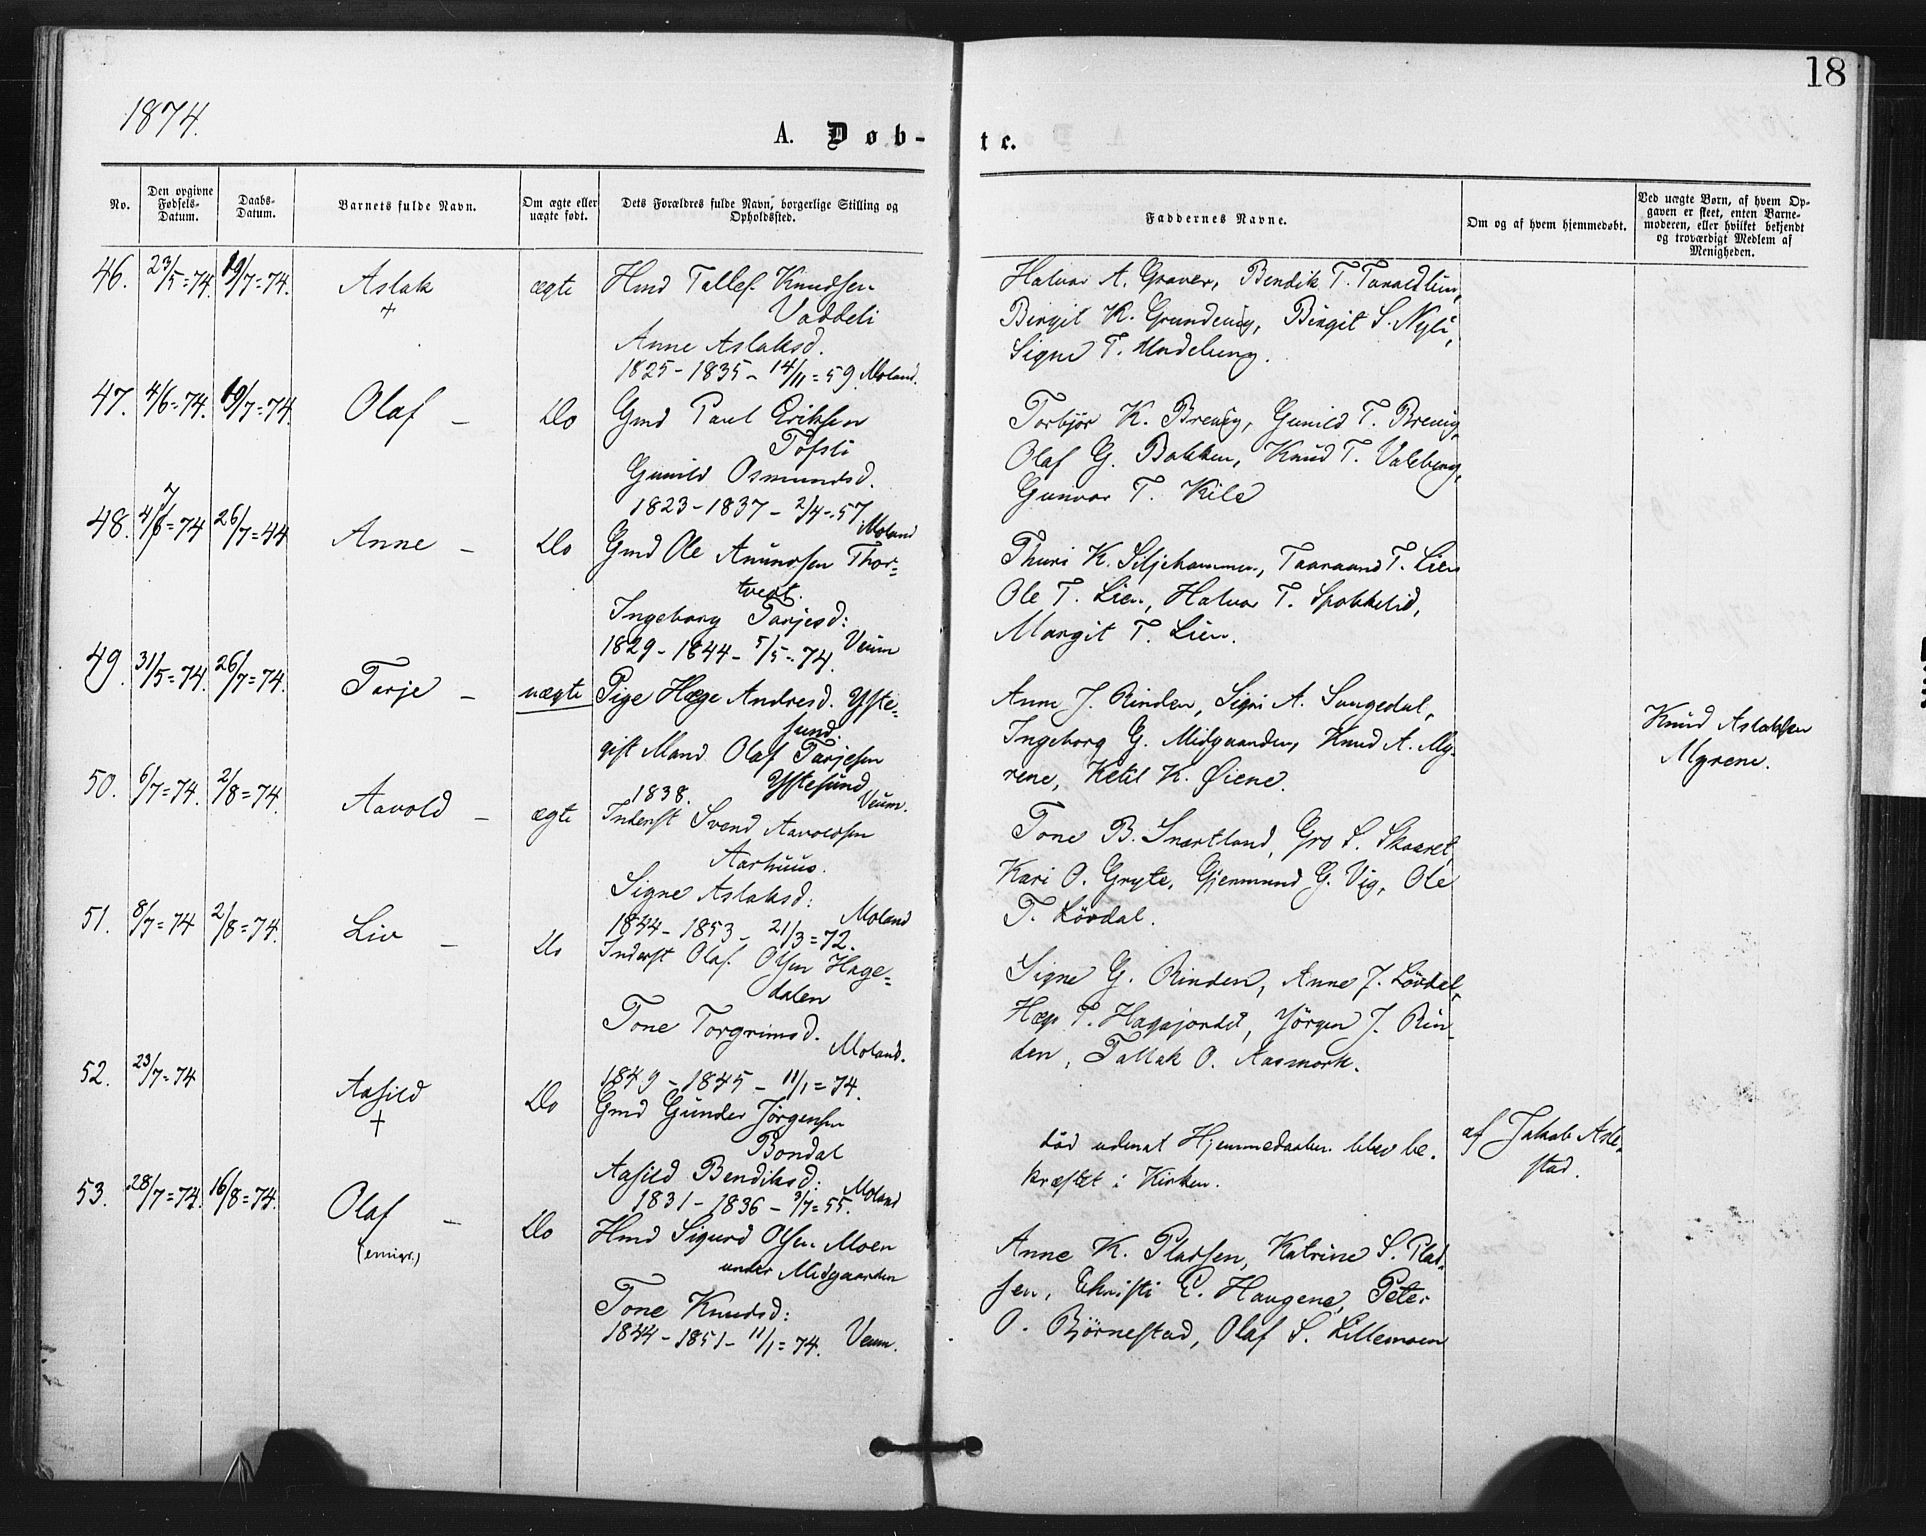 18
1874.
A. Døb-
te.
No.
Den opgivne Fødsels-Datum.
Daabs-Datum.
Barnets fulde Navn.
Om ægte eller uægte født.
Dets Forældres fulde Navn, borgerlige Stilling og Opholdssted.
Faddernes Navne.
Om og af hvem hjemmedøbt.
Ved uægte Børn, af hvem Opgaven er skeet, enten Barnemoderen, eller hvilket bekjendt og troværdigt Medlem af Menigheden.
46. 23/5=74. 19/7=74. Aslak + ægte
Hmd Tallef Knudsen
Vaddeli
Anne Aslaksd.
1825 - 1835 - 14/11=59. Moland.
Halvor A. Graver, Bendik T.
Birgit K. Grundevig, Birgit S. Nyli,
Signe T.
47. 4/6=74. 19/7=74. Olaf - Do
Gmd Paul Eriksen
Tofsli
Gunild Osmundsd.
1823 - 1837 - 2/4=57. Moland
Torbjør K. Brevig, Gunild T. Brevig,
Olaf G. Bakken, Knud T. Valeberg,
Gunvor T. Kile
48. 4/7=74 26/7=44 Anne - Do
Gmd Ole Anundsen Thor=
tvedt.
Ingeborg Tarjesd:
1829 - 1844 - 5/5=74. Veum
Thuri K. Siljehammen, Taaraand T. Lien
Ole T. Lien, Halvor T. Spokkelid,
Margit T. Lien.
49. 31/5=74. 26/7=74. Tarje - uægte
Pige Hæge Andresd. Yste=
sund.
gift Mand Olaf Tarjesen
Ystesund
1838. Veum.
Anne J. Rinden, Sigri A. Sungedal,
Ingeborg G. Midgaarden, Knud A. My-
rene, Ketil K. Øiene.
Knud Aslaksen
Myrene.
50. 6/7=74. 2/8=74. Aavold - ægte
Inderst Svend Aavoldsen
Aarhuus.
Signe Aslaksd:
1844 - 1853 - 21/3=72. Moland
Tone B. Snartland, Gro S. Skaaret,
Kari O. Gryte, Gjermund G. Vig, Ole
T. Lövdal.
51. 8/7=74 2/8=74. Liv - Do
Inderst Olaf Olsen Hage=
dalen
Tone Torgrimsd.
Moland.
1849 - 1845 - 11/1=74.
Signe G. Rinden, Anne J. Lövdal,
Hæge T. Hagajordet, Jörgen J. Rin-
den, Tallak O. Aasmork.
52. 23/7=74 Aasild + Do
Gmd Gunder Jørgensen
Bondal
Aasild Bendiksd:
1831 - 1836 - 3/7=55. Moland
död udenat Hjemmedaaben blev be-
kræftet i Kirken.
af Jakob Asle-
stad.
53. 28/7=74. 16/8=74. Olaf - Do
(emigr.)
Hmd Sigurd Olsen Moen
under Midgaarden
Tone Knudsd:
1844 - 1851 - 11/1=74. Veum.
Anne K. Pladsen, Katrine S. Plad-
sen, Christi E. Haugene, Peter
O. Björnestad, Olaf S. Lillemoen